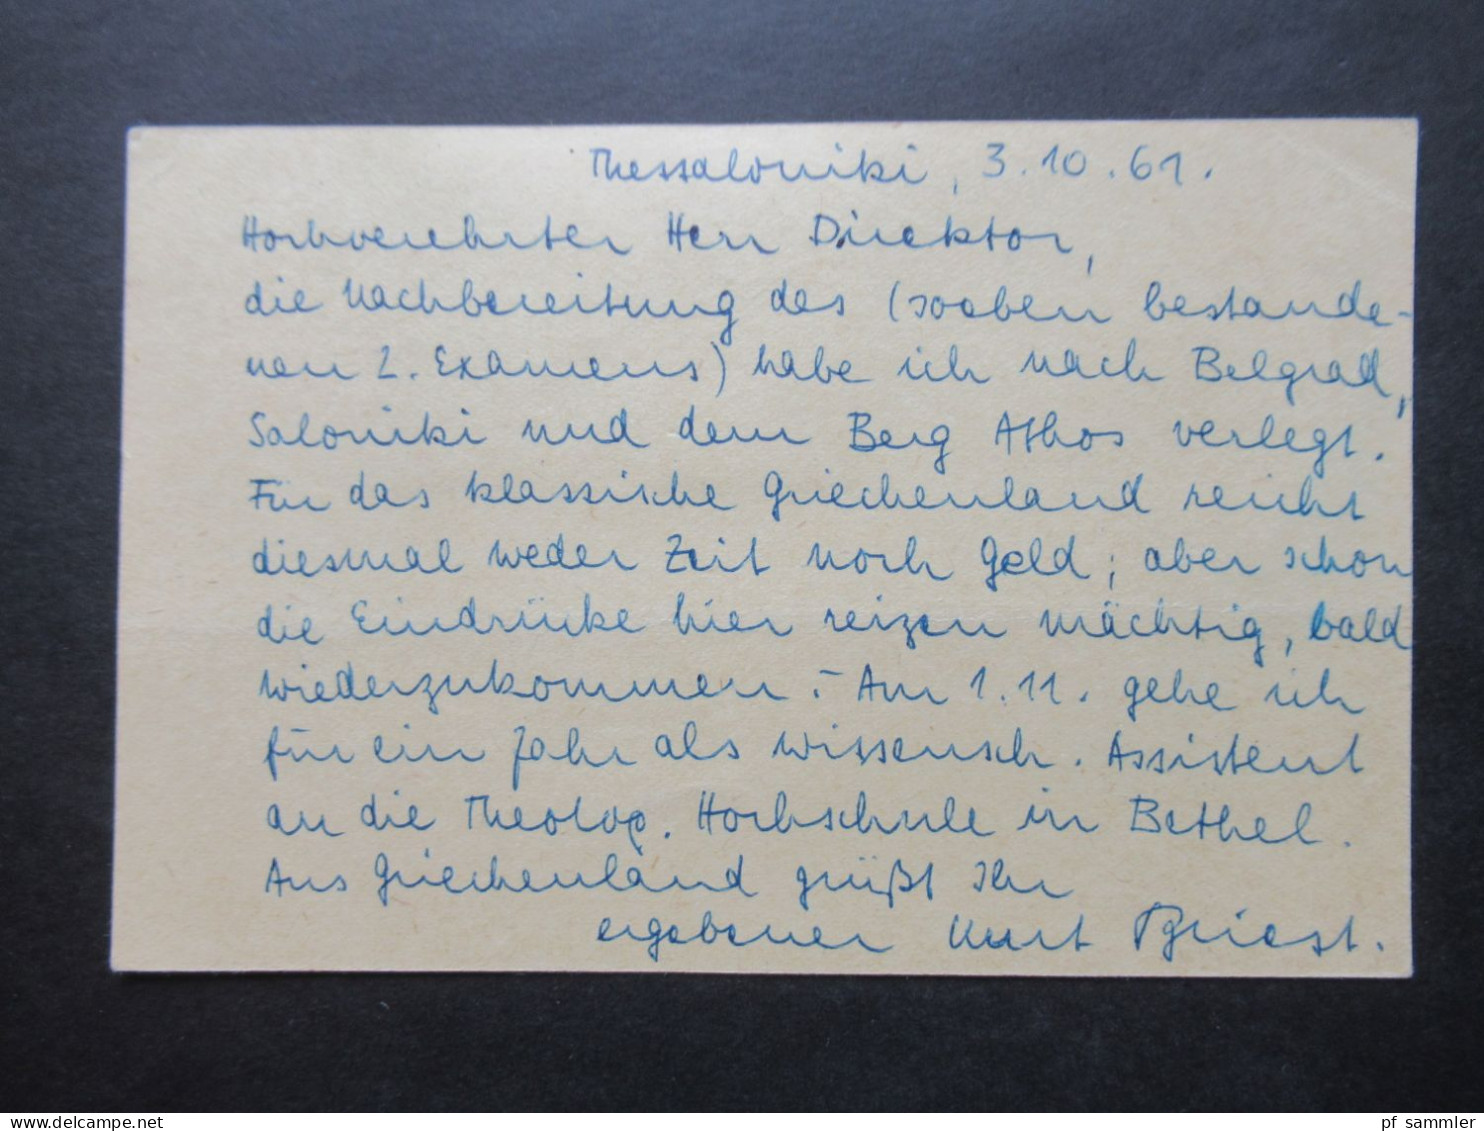 Thessaloniki, 3.10.61.
Hochverehrter Herr Direktor,
die Nachbereitung des (soeben bestande-
nen 2. Examens) habe ich nach Belgrad,
Saloniki und dem Berg Athos verlegt.
Für das klassische Griechenland reicht
diesmal weder Zeit noch Geld; aber schon
die Eindrücke hier reizen mächtig, bald
wiederzukommen. – Am 1.11. gehe ich
für ein Jahr als wissensch. Assistent
an die Theolog. Hochschule in Bethel.
Aus Griechenland grüßt Ihr
ergebener Kurt Briest.
www.delcampe.net
pf_sammler